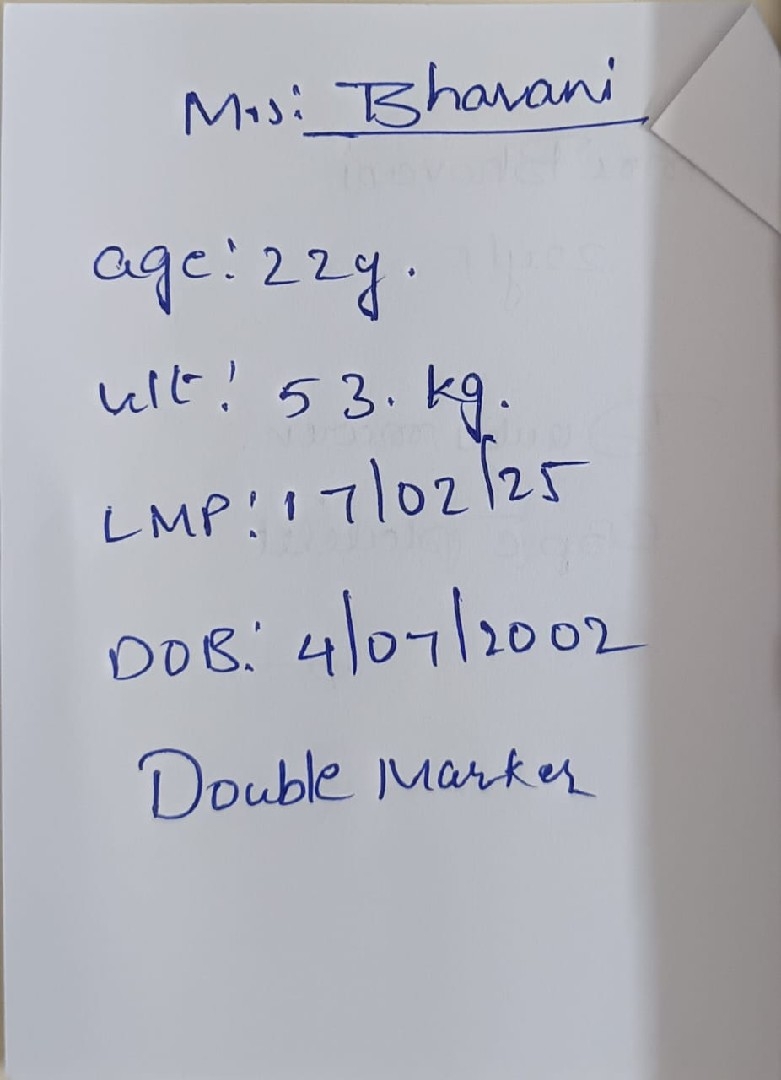 Mrs: Bhavani
age: 22y.
wt: 53. kg.
LMP: 17/02/25
DOB: 4/07/2002
Double Marker